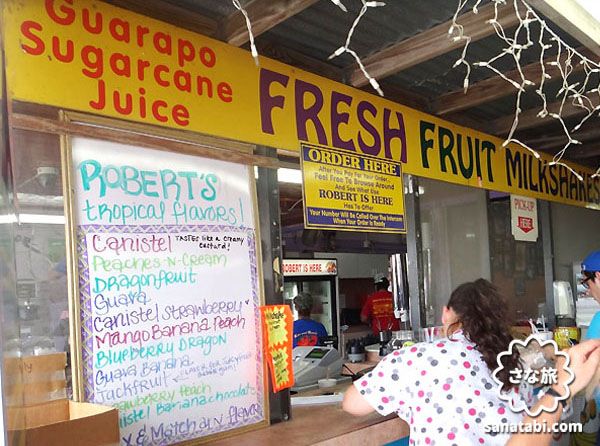 Guarapo
Sugarcane
Juice
FRESH FRUIT MILKSHAKES
ROBERT'S
tropical flavors!
Canistel TASTES like a creamy
custard!
Peaches-N-Cream
Dragonfruit
Guava
Canistel Strawberry
Mango Banana Peach
Blueberry Dragon
Guava Banana
Jackfruit
Strawberry Peach
Canistel Banana chocolate
Mix & Match any flavor
ORDER HERE
After You Pay For Your Order...
Feel Free To Browse Around
And See What Else
ROBERT IS HERE
Has To Offer
Your Number Will Be Called Over The Intercom
When Your Order Is Ready
PICK-UP
HERE
ROBERT IS HERE
さな旅
sanatabi.com